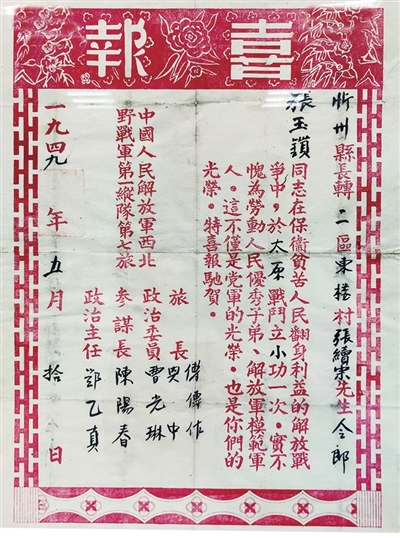 喜報
忻州縣長轉二區東樓村張續宗先生令郎
張玉鎖
同志在保衛貧苦人民翻身利益的解放戰
爭中，於太原戰鬥立小功一次。實不
愧為勞動人民優秀子弟、解放軍模範軍
人。這不僅是党軍的光榮。也是你們的
光榮。特喜報馳賀。
中國人民解放軍西北
野戰軍第一縱隊第七旅
旅長 傅傳作
政治委員 曹光琳
參謀長 陳陽春
政治主任 鄧乙真
一九四九年五月拾日